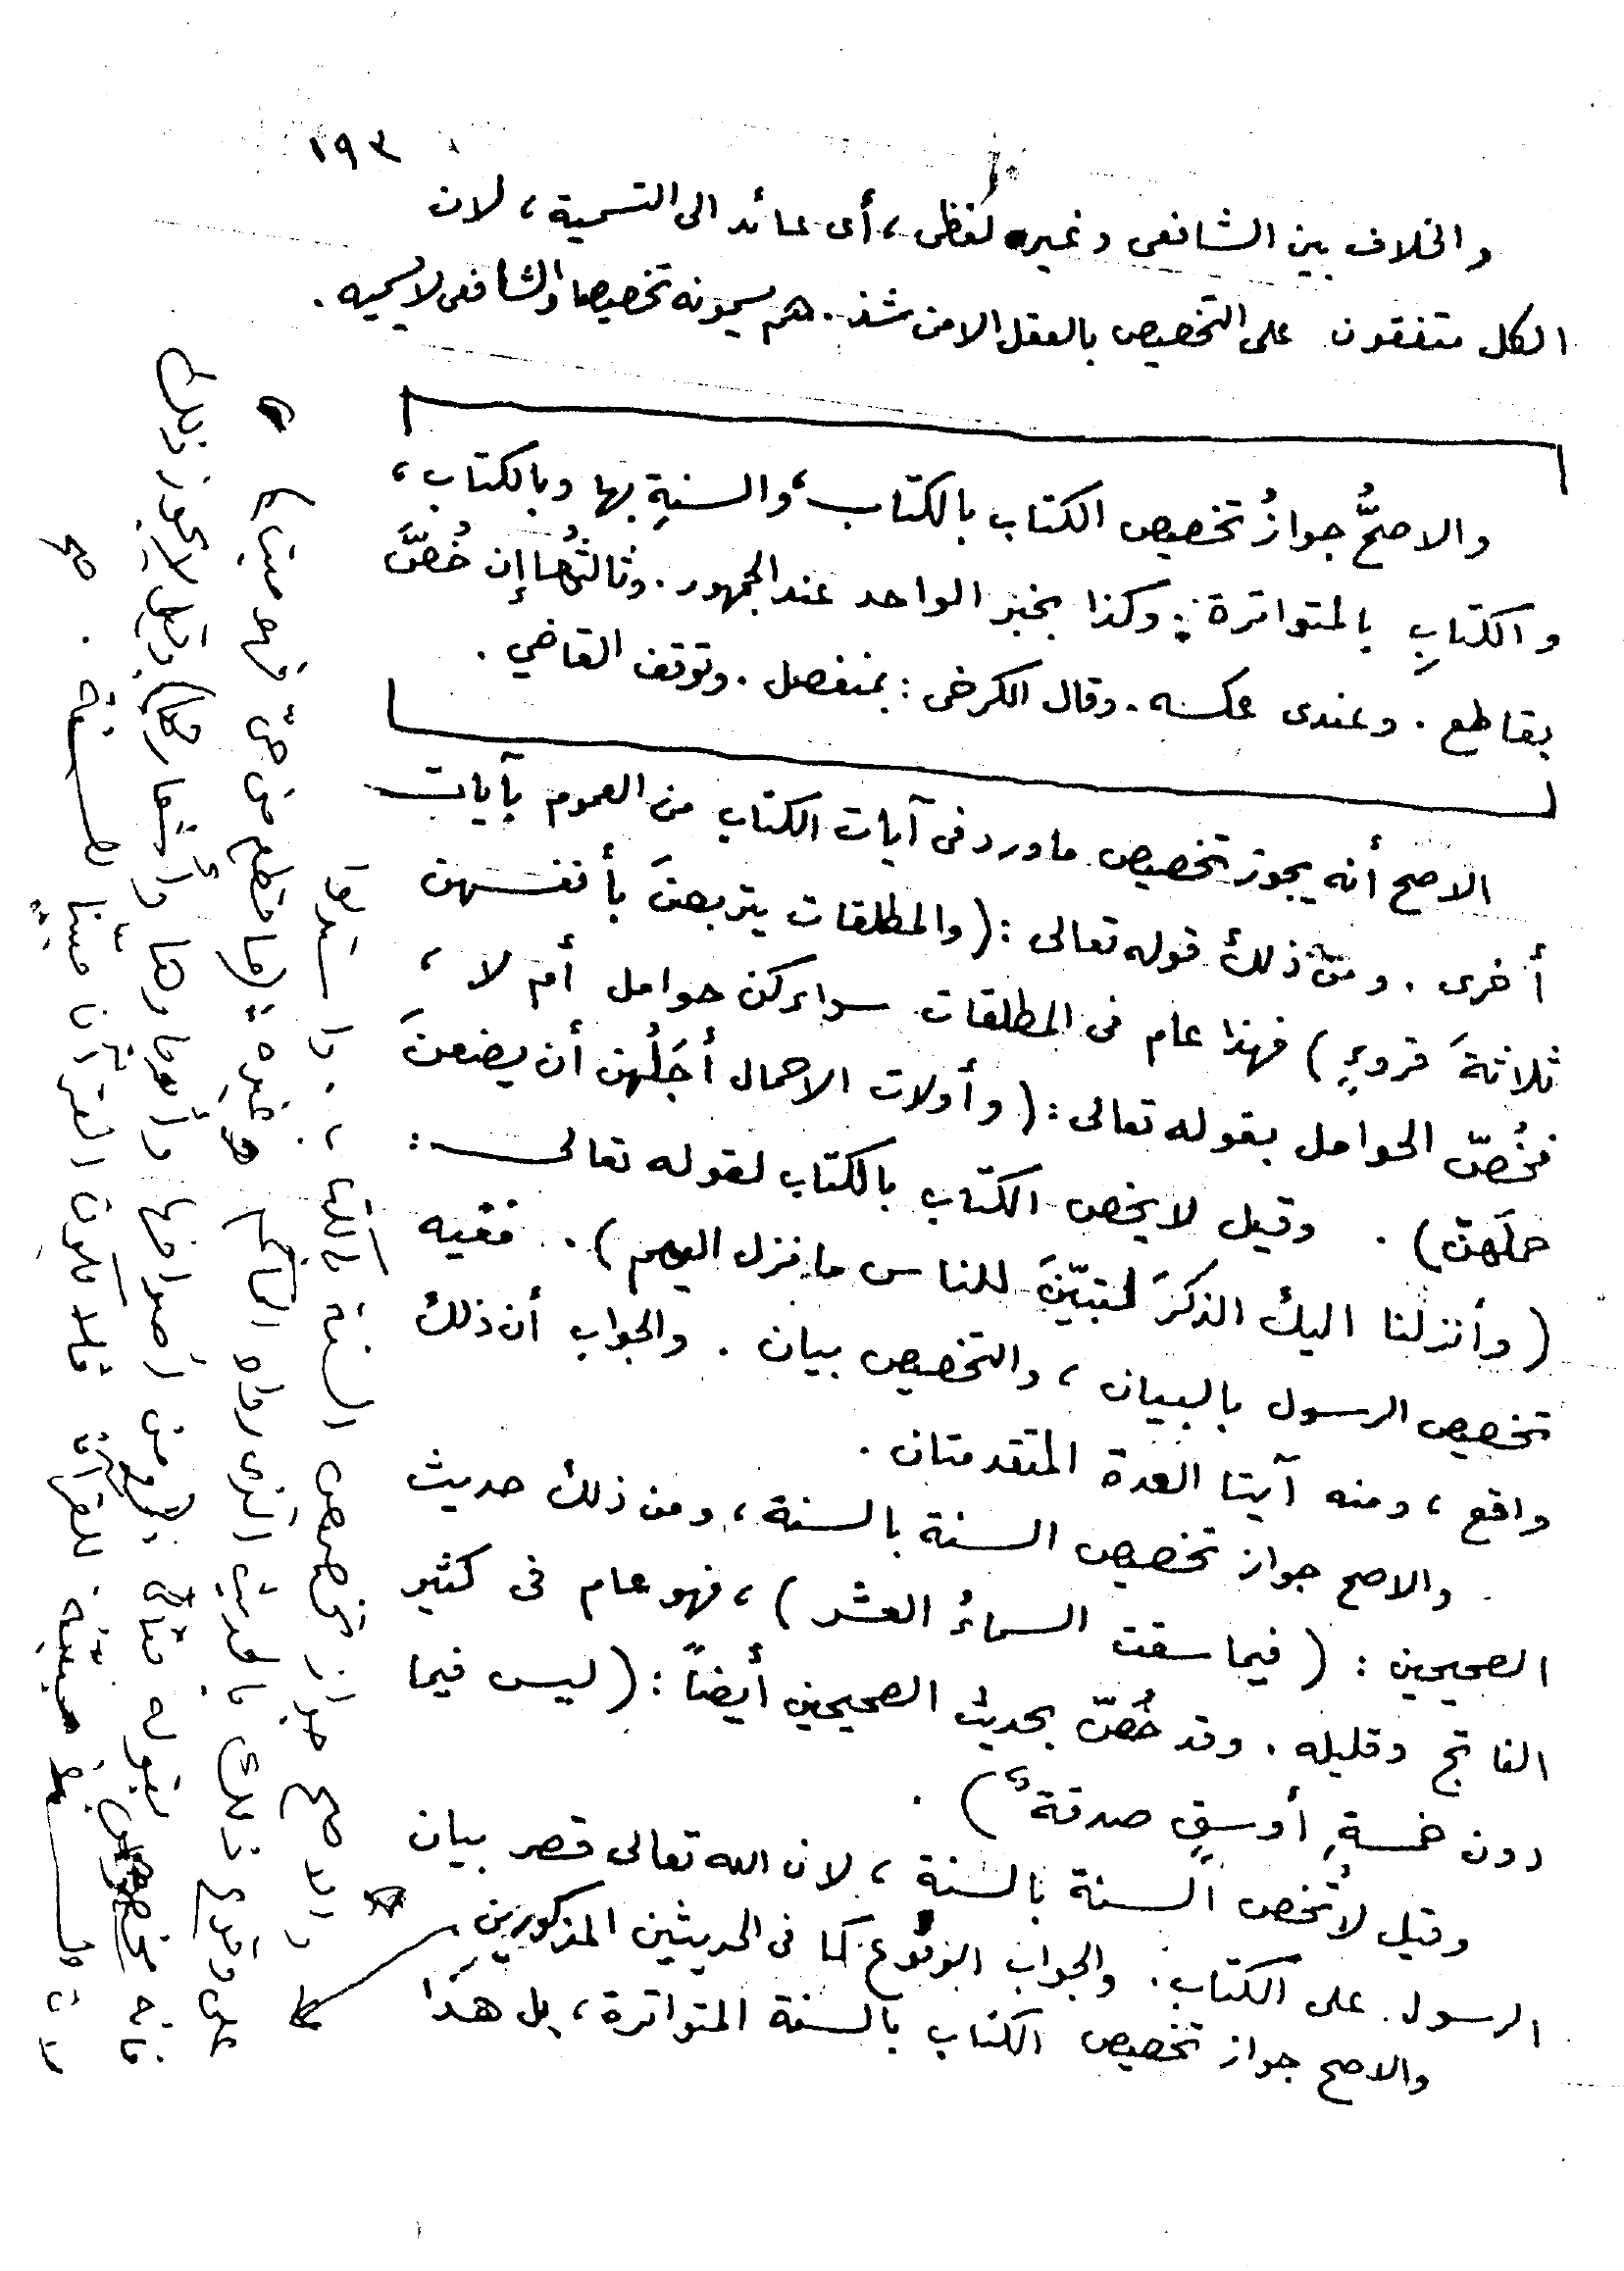 ١٩٣
والخلاف بين الشافعى وغيره لفظى ، أى عائد الى التسمية ، لان
الكل متفقون على التخصيص بالعقل الا من شذ . هم يسمونه تخصيصا والشافعى لا يسميه .
والاصحُّ جوازُ تخصيص الكتاب بالكتاب ، والسنةِ بها وبالكتاب ،
والكتابِ بالمتواترة . وكذا بخبر الواحد عند الجمهور . وثالثُها إن خُصَّ
بقاطع . وعندى عكسه . وقال الكرخى : بمنفصل . وتوقف القاضي .
الاصح أنه يجوز تخصيص ما ورد فى آيات الكتاب من العموم بآيات
أخرى . ومن ذلك قوله تعالى : ( والمطلقات يتربصنَ بأنفسهن
ثلاثةَ قروءٍ ) فهذا عام فى المطلقات سواء كن حوامل أم لا ،
فخُصّ الحوامل بقوله تعالى : ( وأولات الاحمال أجَلُهن أن يضعنَ
حملَهنّ ) . وقيل لا يخص الكتاب بالكتاب لقوله تعالى :
( وأنزلنا اليك الذكرَ لتبيّنَ للناس ما نزل اليهم ) . ففيه
تخصيص الرسول بالبيان ، والتخصيص بيان . والجواب أن ذلك
واقع ، ومنه آيتا العدة المتقدمتان .
والاصح جواز تخصيص السنة بالسنة ، ومن ذلك حديث
الصحيحين : ( فيما سقت السماءُ العشر ) ، فهو عام فى كثير
الفاتح وقليله . وقد خُصّ بحديث الصحيحين أيضاً : ( ليس فيما
دون خمسةِ أوسقٍ صدقة ) .
وقيل لا تُخص السنة بالسنة ، لان الله تعالى قصر بيان
الرسول على الكتاب . والجواب الوقوع كما فى الحديثين المذكورين .
والاصح جواز تخصيص الكتاب بالسنة المتواترة ، بل هذا
والاصح جواز تخصيص السنة بالكتاب ، واستدلوا
على وقوع ذلك بالحديث الذى رواه الحاكم وغيره ( ما قطع من حىّ فهو ميت )
فانه مخصوص بقوله تعالى ( ومن أصوافها وأوبارها وأشعارها ) وقيل لا يجوز ذلك
للقرآن فلا يكون القرآن مبيّنا للسنة .